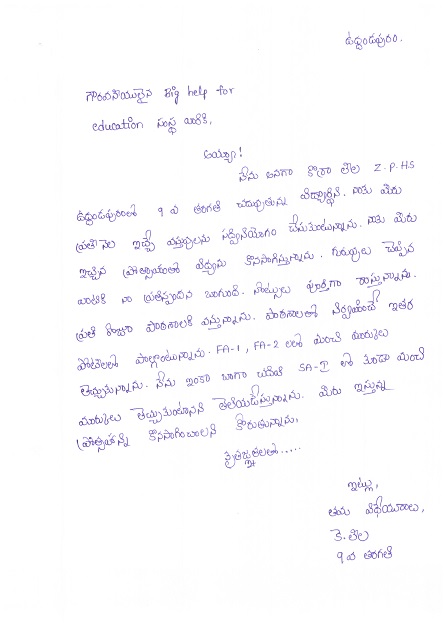 ఉద్దండపురం.
గౌరవనీయులైన Big help for
education సంస్థ వారికి,
అయ్యా!
నేను అనగా కొర్రా తల Z.P.H.S
ఉద్దండపురంలో 9 వ తరగతి చదువుతున్న విద్యార్థిని. నాకు మీరు
ప్రతినెల ఇచ్చే వస్తువులను సద్వినియోగం చేసుకుంటున్నాను. నాకు మీరు
ఇచ్చిన ప్రోత్సాహంతో విద్యను కొనసాగిస్తున్నాను. గురువులు చెప్పిన
వాటికి నా ప్రతిస్పందన బాగుంది. నోట్సులు పూర్తిగా రాస్తున్నాను.
ప్రతి రోజూ పాఠశాలకి వస్తున్నాను. పాఠశాలలో నిర్వహించే ఇతర
పోటీలలో పాల్గొంటున్నాను. FA-1, FA-2 లలో మంచి మార్కులు
తెచ్చుకున్నాను. నేను ఇంకా బాగా చదివి SA-I లో కూడా మంచి
మార్కులు తెచ్చుకుంటానని తెలియజేస్తున్నాను. మీరు ఇస్తున్న
ప్రోత్సాహాన్ని కొనసాగించాలని కోరుతున్నాను,
కృతజ్ఞతలతో.....
ఇట్లు,
తమ విధేయురాలు,
కె. తల
9 వ తరగతి